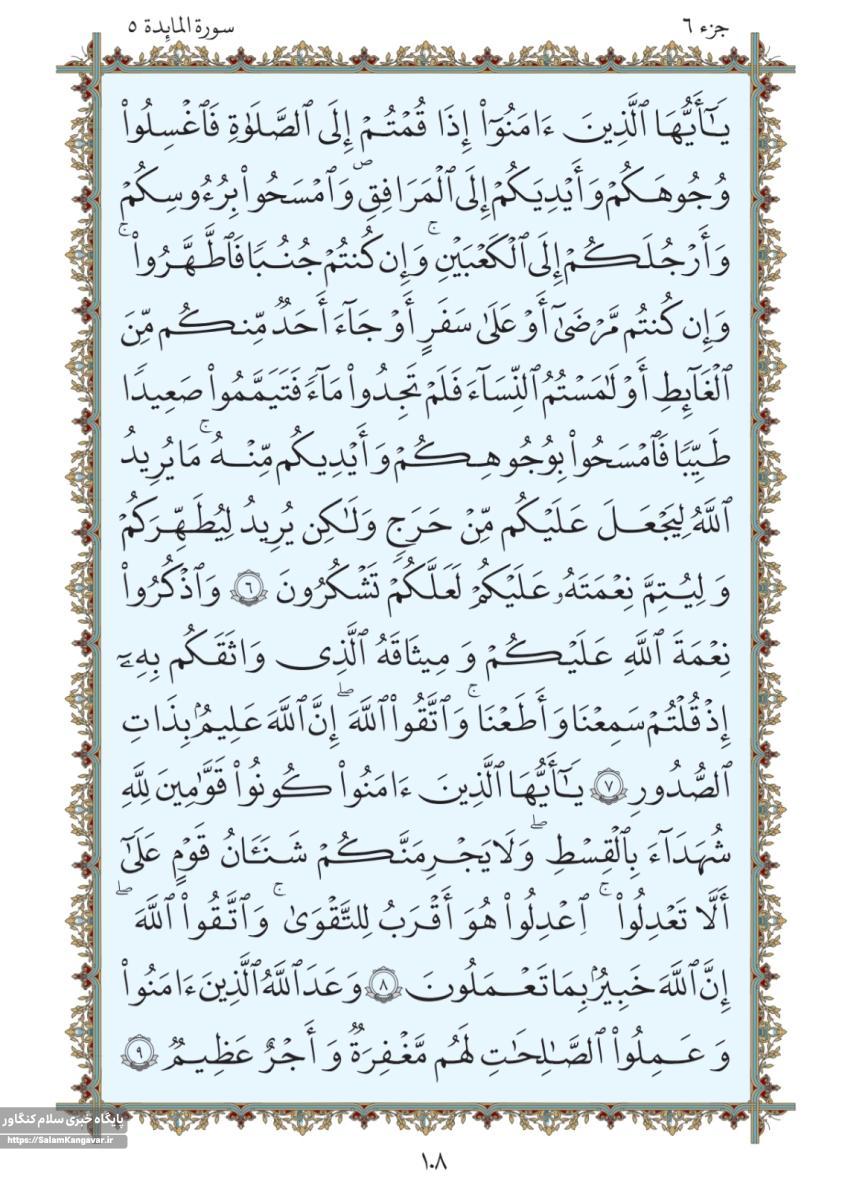 جزء ٦
سورة المایدة ٥
يَـٰٓأَيُّهَا ٱلَّذِينَ ءَامَنُوٓا۟ إِذَا قُمْتُمْ إِلَى ٱلصَّلَوٰةِ فَٱغْسِلُوا۟
وُجُوهَكُمْ وَأَيْدِيَكُمْ إِلَى ٱلْمَرَافِقِ ۖ وَٱمْسَحُوا۟ بِرُءُوسِكُمْ
وَأَرْجُلَكُمْ إِلَى ٱلْكَعْبَيْنِ ۚ وَإِن كُنتُمْ جُنُبًا فَٱطَّهَّرُوا۟ ۚ
وَإِن كُنتُم مَّرْضَىٰٓ أَوْ عَلَىٰ سَفَرٍ أَوْ جَآءَ أَحَدٌ مِّنكُم مِّنَ
ٱلْغَآئِطِ أَوْ لَـٰمَسْتُمُ ٱلنِّسَآءَ فَلَمْ تَجِدُوا۟ مَآءً فَتَيَمَّمُوا۟ صَعِيدًا
طَيِّبًا فَٱمْسَحُوا۟ بِوُجُوهِكُمْ وَأَيْدِيكُم مِّنْهُ ۚ مَا يُرِيدُ
ٱللَّهُ لِيَجْعَلَ عَلَيْكُم مِّنْ حَرَجٍ وَلَـٰكِن يُرِيدُ لِيُطَهِّرَكُمْ
وَلِيُتِمَّ نِعْمَتَهُۥ عَلَيْكُمْ لَعَلَّكُمْ تَشْكُرُونَ ٦ وَٱذْكُرُوا۟
نِعْمَةَ ٱللَّهِ عَلَيْكُمْ وَمِيثَاقَهُ ٱلَّذِى وَاثَقَكُم بِهِۦٓ
إِذْ قُلْتُمْ سَمِعْنَا وَأَطَعْنَا ۚ وَٱتَّقُوا۟ ٱللَّهَ ۖ إِنَّ ٱللَّهَ عَلِيمٌۢ بِذَاتِ
ٱلصُّدُورِ ٧ يَـٰٓأَيُّهَا ٱلَّذِينَ ءَامَنُوا۟ كُونُوا۟ قَوَّٰمِينَ لِلَّهِ
شُهَدَآءَ بِٱلْقِسْطِ ۖ وَلَا يَجْرِمَنَّكُمْ شَنَـَٔانُ قَوْمٍ عَلَىٰٓ
أَلَّا تَعْدِلُوا۟ ۚ ٱعْدِلُوا۟ هُوَ أَقْرَبُ لِلتَّقْوَىٰ ۚ وَٱتَّقُوا۟ ٱللَّهَ ۖ
إِنَّ ٱللَّهَ خَبِيرٌۢ بِمَا تَعْمَلُونَ ٨ وَعَدَ ٱللَّهُ ٱلَّذِينَ ءَامَنُوا۟
وَعَمِلُوا۟ ٱلصَّـٰلِحَـٰتِ لَهُم مَّغْفِرَةٌ وَأَجْرٌ عَظِيمٌ ٩
پایگاه خبری سلام کنگاور
https://SalamKangavar.ir
١٠٨